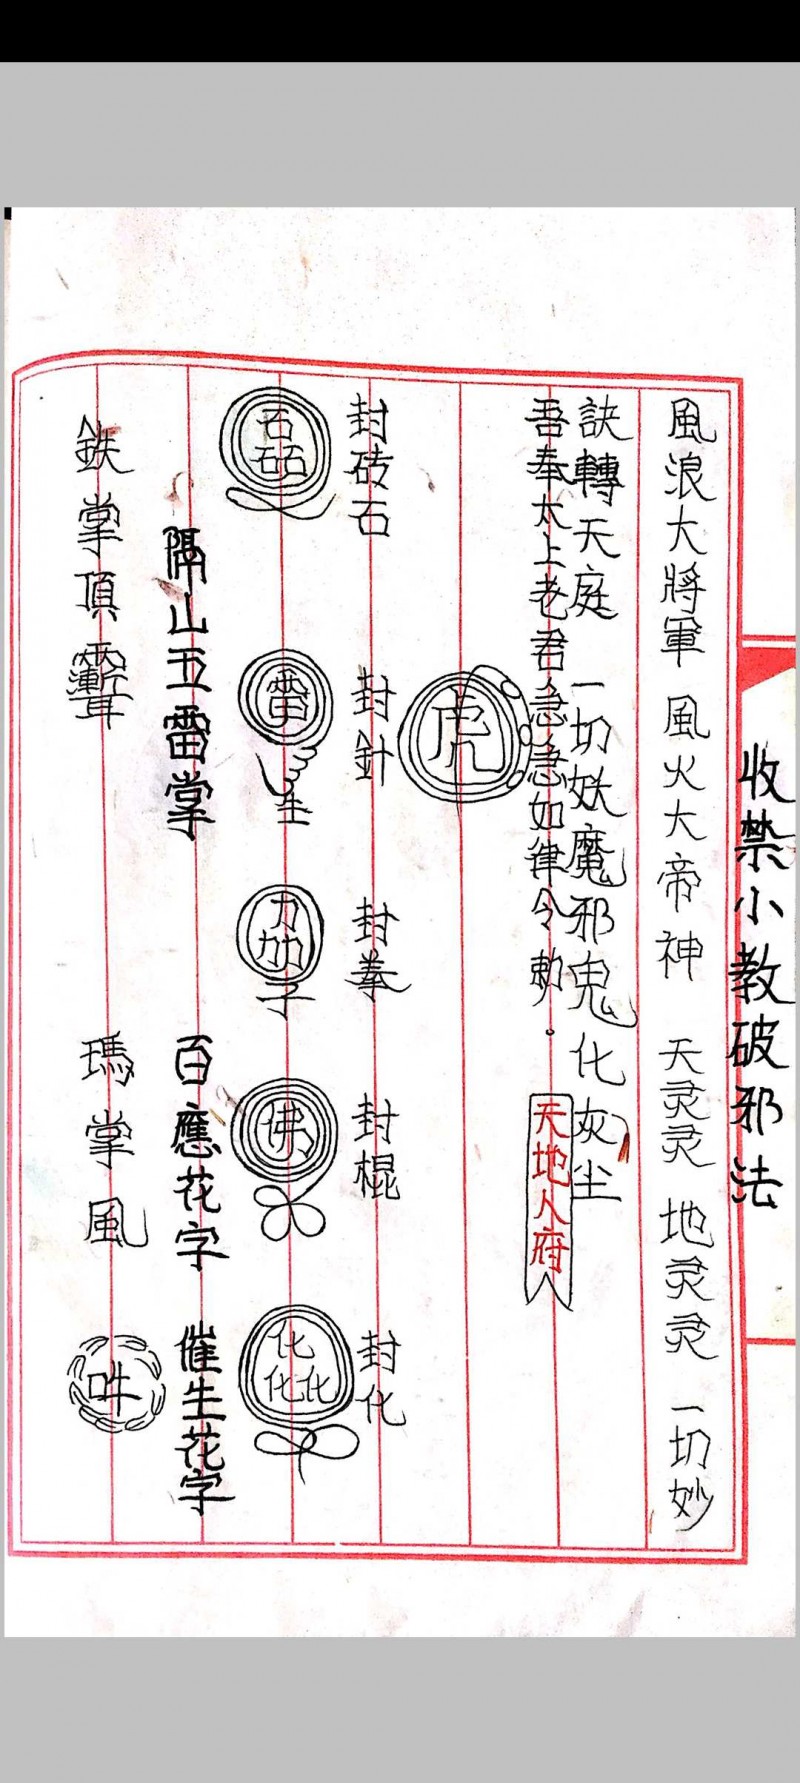 收禁小教破邪法
風浪大將軍 風火大帝神 天灵灵 地灵灵 一切妙
訣轉天庭 一切妖魔邪鬼化灰尘
吾奉太上老君急急如律令勅。 天地人府
虎
封砖石 封針 封拳 封棍 封化
石石石 雷生 力力力子 佛 化化化
隔山五雷掌 百應花字 催生花字
鉄掌頂 瑪掌風 吽